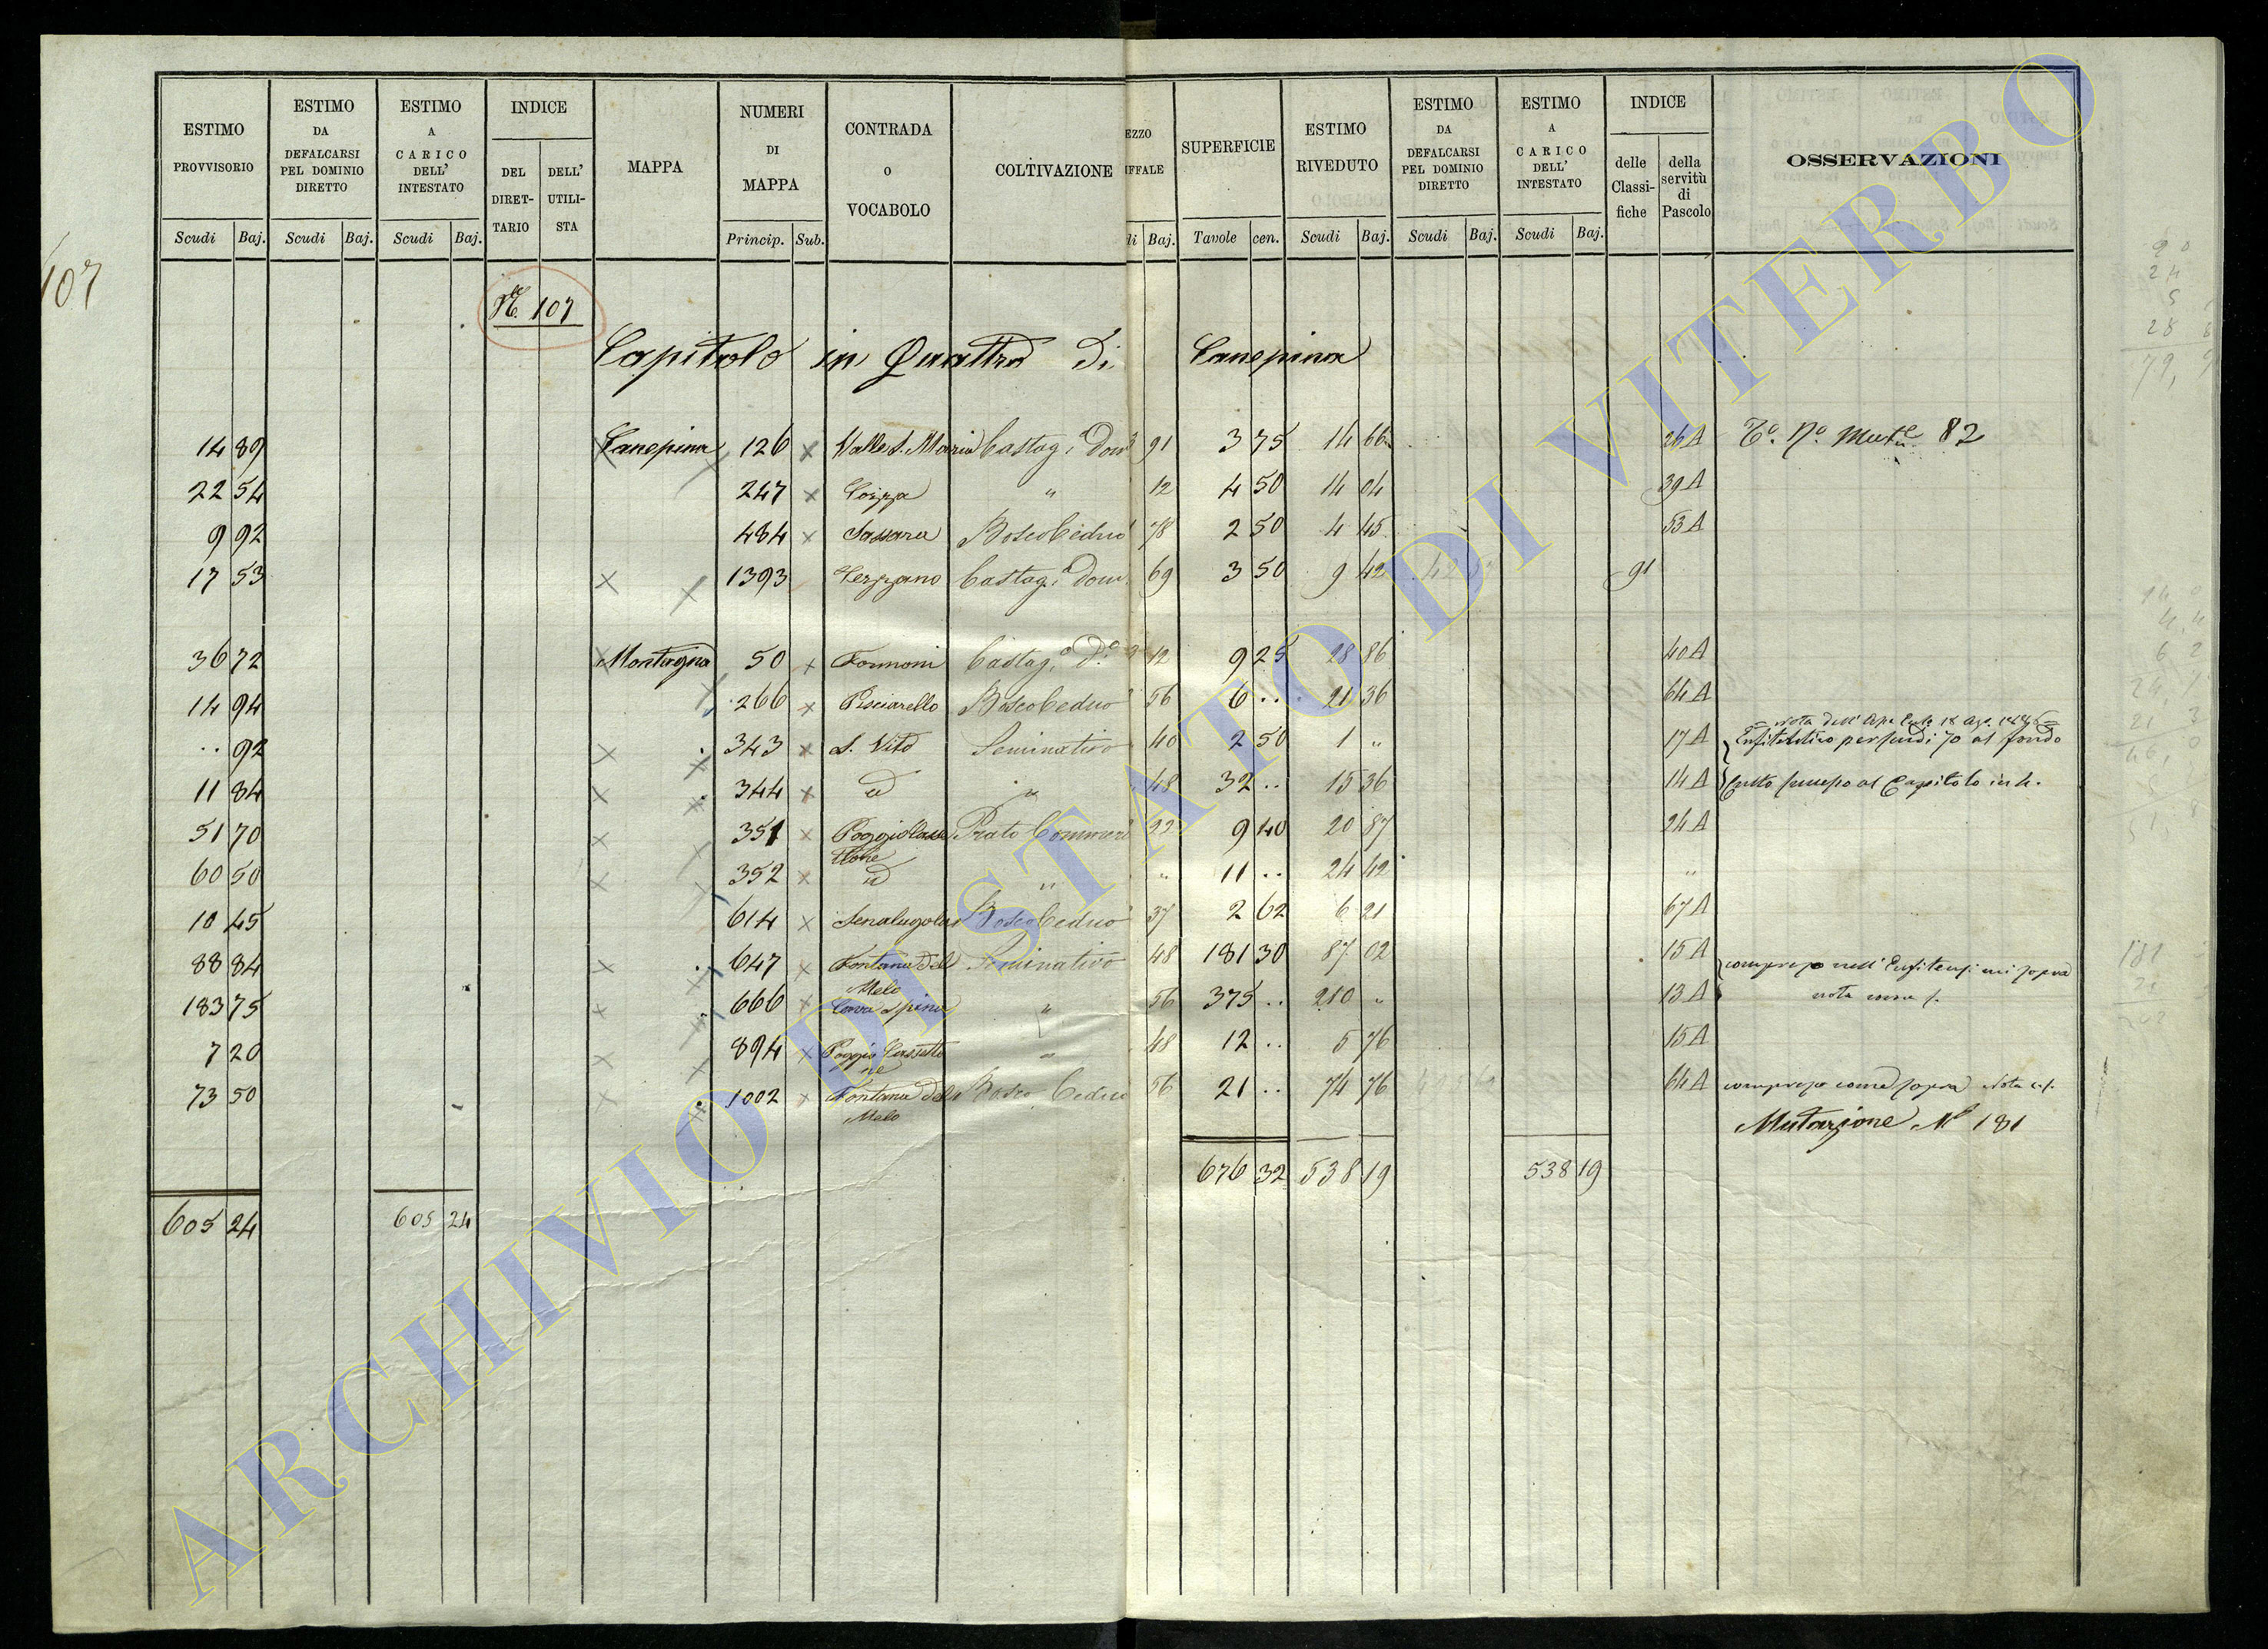 107
ESTIMO PROVVISORIO | ESTIMO DA DEFALCARSI PEL DOMINIO DIRETTO | ESTIMO A CARICO DELL' INTESTATO | INDICE DEL DIRETTARIO | DELL' UTILISTA | MAPPA | NUMERI DI MAPPA | CONTRADA O VOCABOLO | COLTIVAZIONE | EZZO IFFALE | SUPERFICIE | ESTIMO RIVEDUTO | ESTIMO DA DEFALCARSI PEL DOMINIO DIRETTO | ESTIMO A CARICO DELL' INTESTATO | INDICE delle Classifiche | della servitù di Pascolo | OSSERVAZIONI
Scudi Baj. | Scudi Baj. | Scudi Baj. | Princip. Sub. | li Baj. | Tavole cen. | Scudi Baj. | Scudi Baj. | Scudi Baj.
107
Capitolo in Quattro di Canepina
14 89 Canepina 126 Valle S. Maria Castag. 91 3 75 14 66 26 A 82
22 54 247 Coizza " 12 4 50 14 04 39 A
9 92 484 Sassara Bosco Ceduo 78 2 50 4 45 53 A
17 53 1393 Terzano Castag. 69 3 50 9 42 91
36 72 Montagna 50 Formoni Castag. 12 9 25 28 86 40 A
14 94 266 Pisciarello Bosco Ceduo 56 6 .. 21 36 64 A
.. 92 343 S. Vito Seminativo 40 2 50 1 " 17 A
11 84 344 id " 48 32 .. 15 36 14 A
51 70 351 Prato 22 9 40 20 87 24 A
60 50 352 id " " 11 .. 24 42 "
10 45 614 Bosco Ceduo 37 2 62 6 21 67 A
88 84 647 Fontana del Melo Seminativo 48 181 30 87 02 15 A
183 75 666 Cova Spina " 56 375 .. 210 " 13 A
7 20 894 Poggio " 48 12 .. 5 76 15 A
73 50 1002 Fontana del Melo Bosco Ceduo 56 21 .. 74 76 64 A
Mutazione N° 181
605 24 605 24 676 32 538 19 538 19
ARCHIVIO DI STATO DI VITERBO